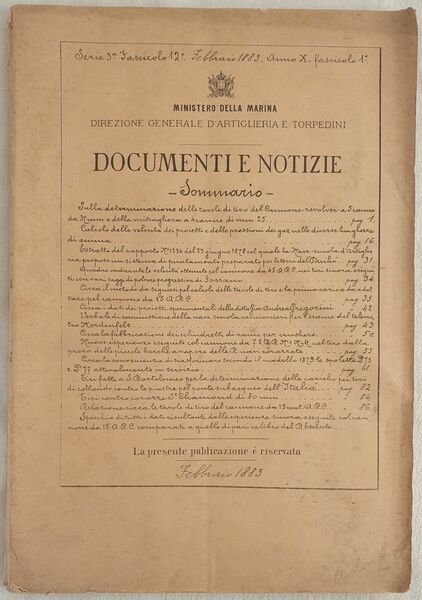 Serie 3ª Fascicolo 12º. Febbraio 1883. Anno X - fascicolo 1º
MINISTERO DELLA MARINA
DIREZIONE GENERALE D'ARTIGLIERIA E TORPEDINI
DOCUMENTI E NOTIZIE
- Sommario -
Sulla determinazione delle tavole di tiro del Cannone-revolver a 5 canne
da mm e della mitragliera a 4 canne di mm 25. pag 1.
Calcolo della velocità dei proietti e delle pressioni dei gaz nelle diverse lunghezze
di anima pag 16.
Estratto del rapporto Nº 1234 del 23 giugno 1878 col quale la Nave-scuola d'Artiglie
ria propone un sistema di puntamento preparato per le torri del Duilio pag 31.
Quadro indicante le velocità ottenute col cannone da 45 A.R.C. nei tiri sinora esegui
ti con vari saggi di polvere progressiva di Fossano. pag. 34
Circa il metodo da seguirsi nel calcolo delle tavole di tiro e la prima carica da adot
tare pel cannone da 15 A.R.C. pag 35.
Circa i dati dei proietti sperimentali della ditta Gio Andrea Gregorini 42
Verbale di commissione della nave scuola cannonieri per esame del telome
tro Nordenfelt pag 43
Circa la fabbricazione dei cilindretti di rame per crushers. 50
Nuove esperienze eseguite col cannone da 7,5 B.R Nº 1 M. nel tiro dalla
prora delle piccole barche a vapore delle R. navi corazzate pag 55
Circa la convenienza di trasformare secondo il modello 1879 le spolette P. 73
e P. 77 attualmente in servizio. pag 61.
Tiri fatti a S. Bartolomeo per la determinazione delle cariche pei tiri
di collaudo contro le piastre pel ponte subacqueo dell'Italia, pag 82
Tiri contro corazze St Chamond di 80 mm 84.
Relazione circa le tavole di tiro del cannone da 15 cent. A.R.C. 86,
Specchio di tutti i dati risultanti dalle esperienze sinora eseguite col can
none da 15 A.R.C. comparati a quello di pari calibro del
La presente publicazione è riservata
Febbraio 1883